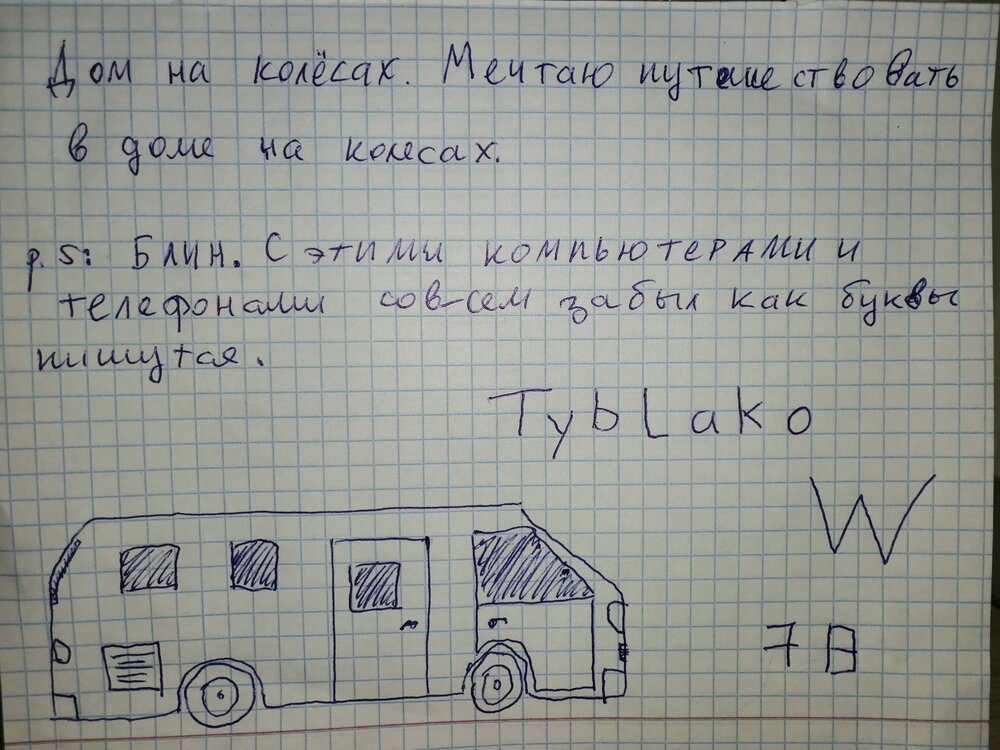 Дом на колёсах. Мечтаю путешествовать
в доме на колесах.
p.s: Блин. С этими компьютерами и
телефонами сов-сем забыл как буквы
пишутся.
TybLako
W
7В